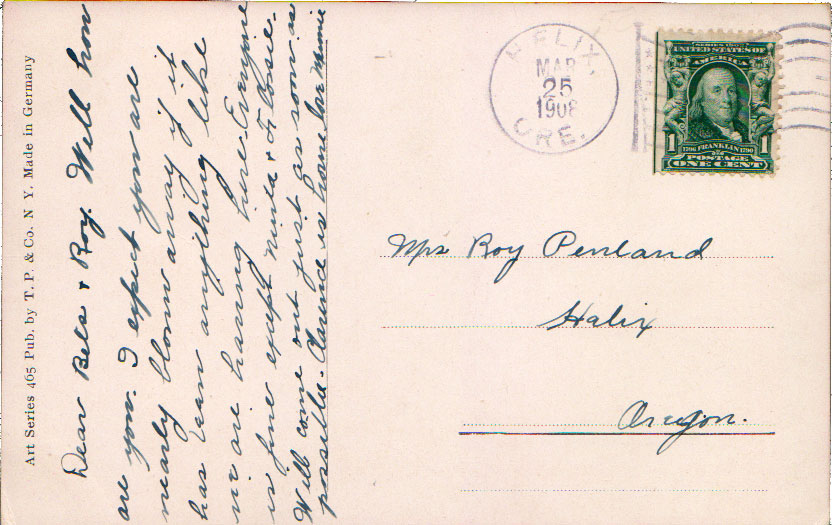 Art Series 465 Pub. by T. P. & Co. N Y. Made in Germany
Dear Bels & Roy. Well how
are you. I expect you are
nearly blown away if it
has been anything like
we are having here. Everyone
is fine except
Will come out just as soon as
possible. is home love Minnie
HELIX,
MAR
25
1908
ORE.
SERIES 1902
UNITED STATES OF
AMERICA
1 FRANKLIN 1
1706 1790
POSTAGE
ONE CENT
Mrs Roy Penland
Helix
Oregon.